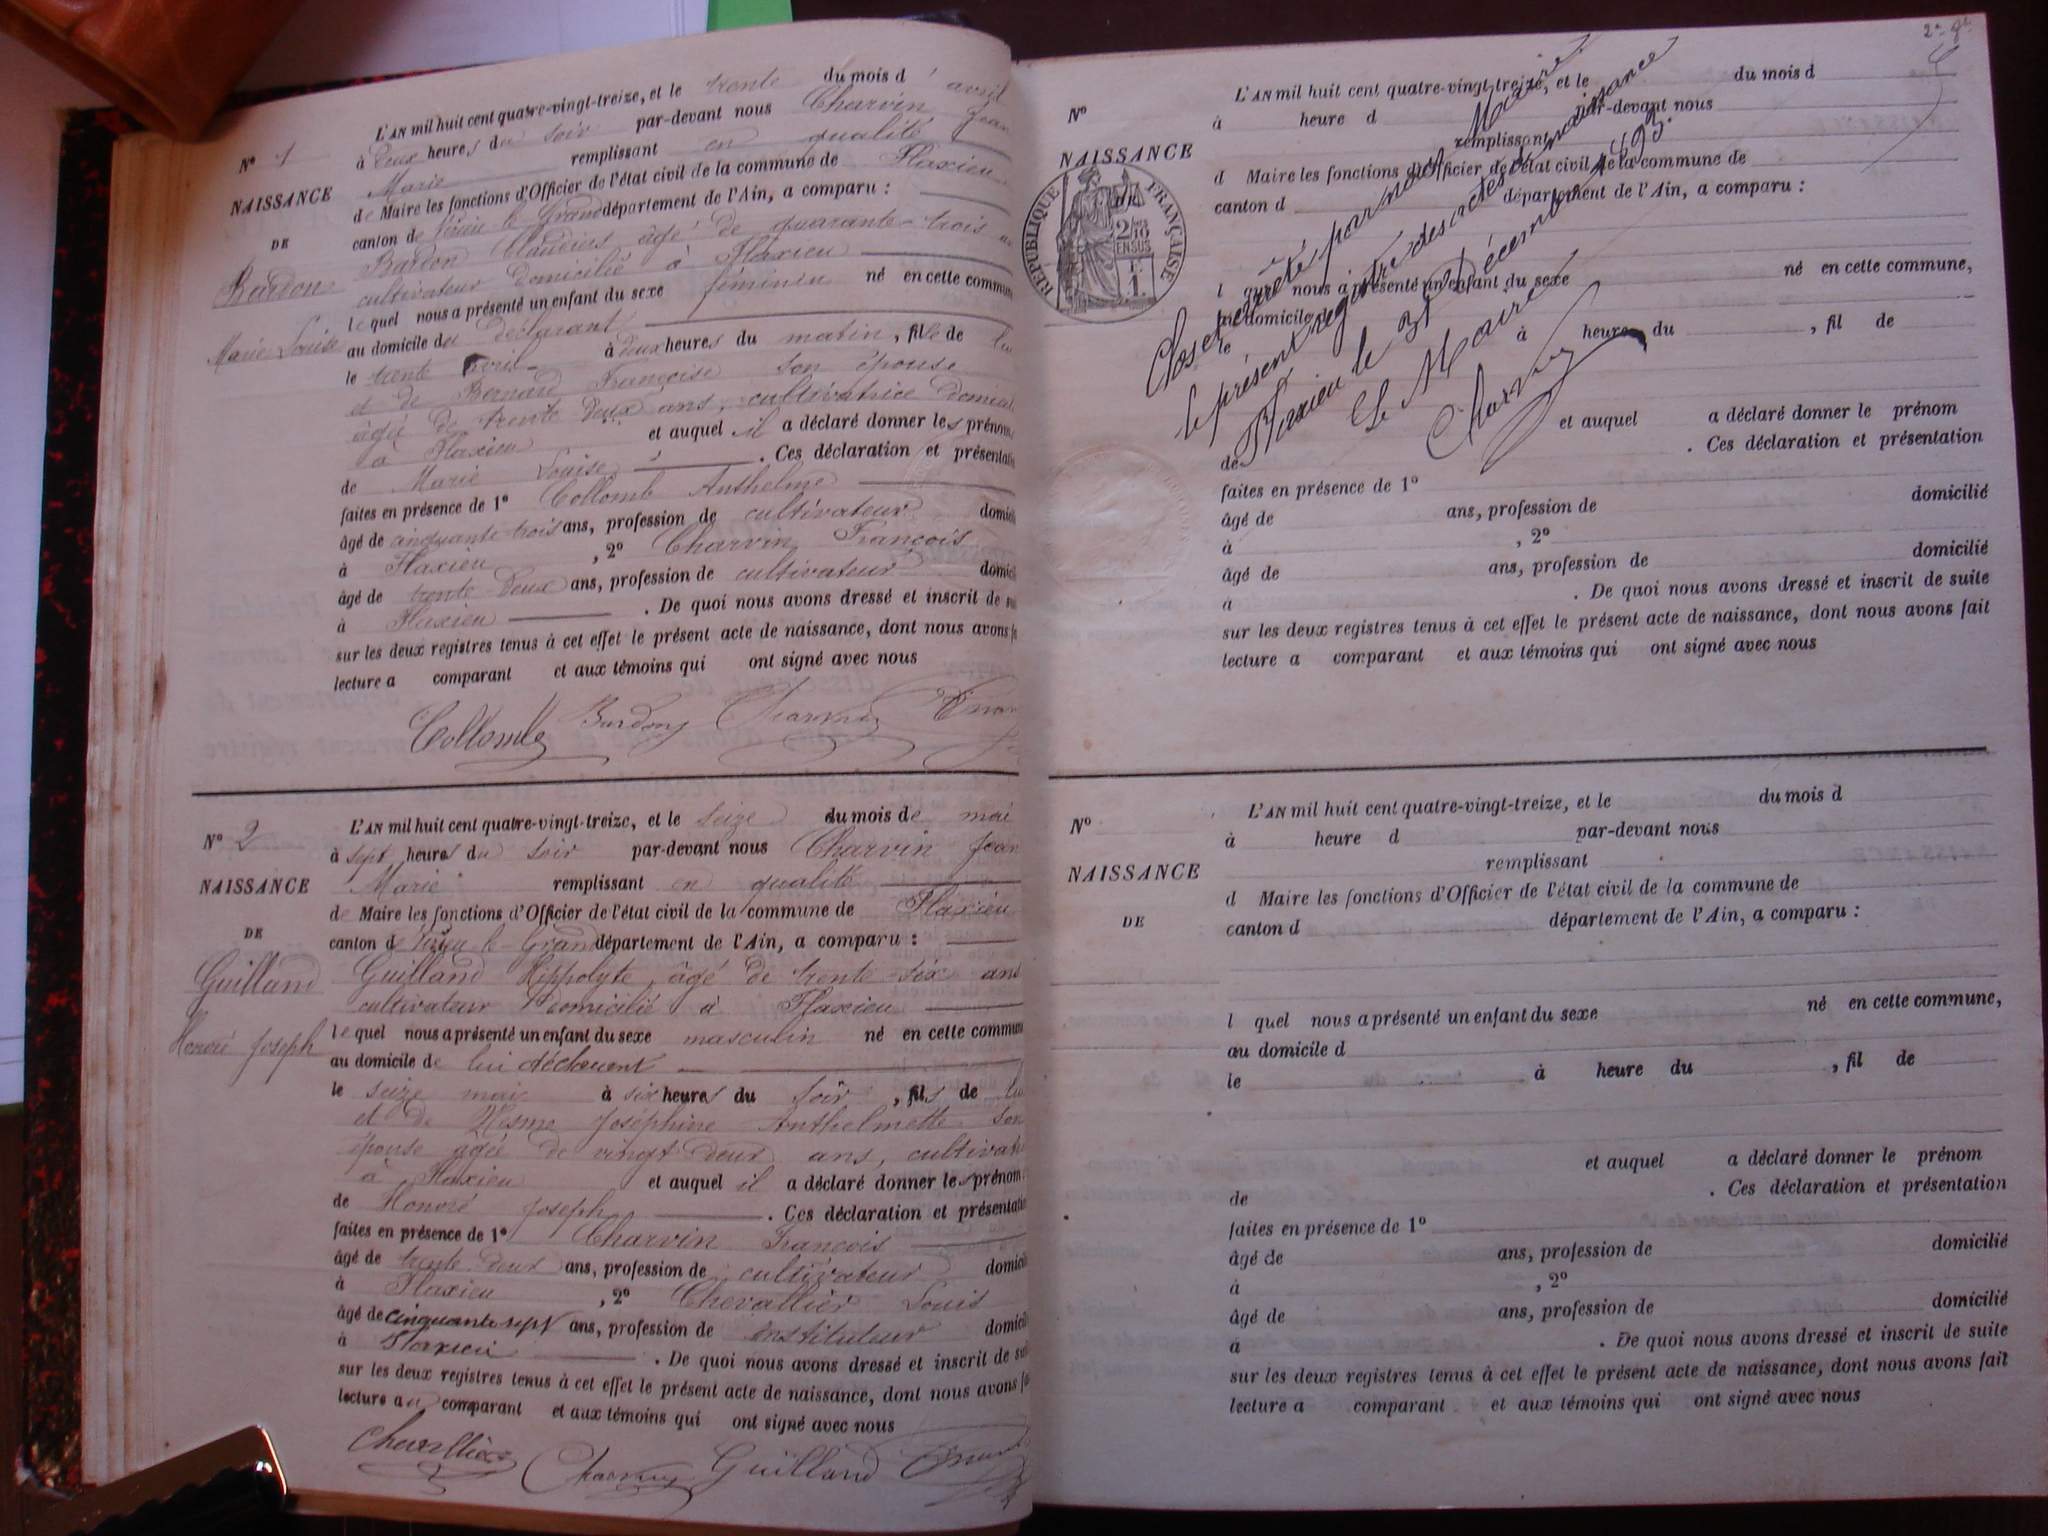 L'AN mil huit cent quatre-vingt-treize, et le trente du mois d'avril
à deux heures du soir par-devant nous Charvin Jean
Marie remplissant en qualité
de Maire les fonctions d'Officier de l'état civil de la commune de Flaxieu
canton de Virieu le Grand département de l'Ain, a comparu :
Bardon Claudius âgé de quarante-trois
cultivateur domicilié à Flaxieu
lequel nous a présenté un enfant du sexe féminin né en cette commune
au domicile du déclarant
le trente avril à deux heures du matin, fille de lui
et de Bernard Françoise son épouse
âgée de trente deux ans, cultivatrice
à Flaxieu et auquel il a déclaré donner les prénoms
de Marie Louise . Ces déclaration et
faites en présence de 1º Collomb Anthelme
âgé de cinquante-trois ans, profession de cultivateur
à Flaxieu , 2º Charvin François
âgé de trente-deux ans, profession de cultivateur
à Flaxieu . De quoi nous avons dressé et inscrit de
sur les deux registres tenus à cet effet le présent acte de naissance, dont nous avons
lecture a comparant et aux témoins qui ont signé avec nous
Collomb Bardon Charvin
Nº 1
NAISSANCE
DE
Bardon
Marie Louise
L'AN mil huit cent quatre-vingt-treize, et le seize du mois de mai
à sept heures du soir par-devant nous Charvin Jean
Marie remplissant en qualité
de Maire les fonctions d'Officier de l'état civil de la commune de Flaxieu
canton de Virieu le-Grand département de l'Ain, a comparu :
Guilland Hippolyte, âgé de trente-six ans
cultivateur domicilié à Flaxieu
lequel nous a présenté un enfant du sexe masculin né en cette commune
au domicile de lui déclarent
le seize mai à six heures du soir , fils de lui
et de Joséphine Anthelmette son
épouse agée de vingt deux ans,
à Flaxieu et auquel il a déclaré donner les prénoms
de Honoré Joseph . Ces déclaration et
faites en présence de 1º Charvin François
âgé de trente-deux ans, profession de cultivateur
à Flaxieu , 2º Chevallier Louis
âgé de cinquante sept ans, profession de instituteur
à Flaxieu . De quoi nous avons dressé et inscrit de
sur les deux registres tenus à cet effet le présent acte de naissance, dont nous avons
lecture au comparant et aux témoins qui ont signé avec nous
Chevallier Charvin Guilland
Nº 2
NAISSANCE
DE
Guilland
Honoré Joseph
L'AN mil huit cent quatre-vingt-treize, et le du mois d
à heure d par-devant nous
remplissant
d Maire les fonctions d'Officier de l'état civil de la commune de
canton d département de l'Ain, a comparu :
l quel nous a présenté un enfant du sexe né en cette commune,
au domicile d
le à heure du , fil de
et auquel a déclaré donner le prénom
de . Ces déclaration et présentation
faites en présence de 1º
âgé de ans, profession de domicilié
à , 2º
âgé de ans, profession de domicilié
à . De quoi nous avons dressé et inscrit de suite
sur les deux registres tenus à cet effet le présent acte de naissance, dont nous avons fait
lecture a comparant et aux témoins qui ont signé avec nous
Clos et arrêté par nous Maire
le présent registre des actes de naissance
Flaxieu le 31 Décembre 1893.
Le Maire
Charvin
Nº
NAISSANCE
DE
RÉPUBLIQUE FRANÇAISE
2/10
EN SUS
1 F.
L'AN mil huit cent quatre-vingt-treize, et le du mois d
à heure d par-devant nous
remplissant
d Maire les fonctions d'Officier de l'état civil de la commune de
canton d département de l'Ain, a comparu :
l quel nous a présenté un enfant du sexe né en cette commune,
au domicile d
le à heure du , fil de
et auquel a déclaré donner le prénom
de . Ces déclaration et présentation
faites en présence de 1º
âgé de ans, profession de domicilié
à , 2º
âgé de ans, profession de domicilié
à . De quoi nous avons dressé et inscrit de suite
sur les deux registres tenus à cet effet le présent acte de naissance, dont nous avons fait
lecture a comparant et aux témoins qui ont signé avec nous
Nº
NAISSANCE
DE